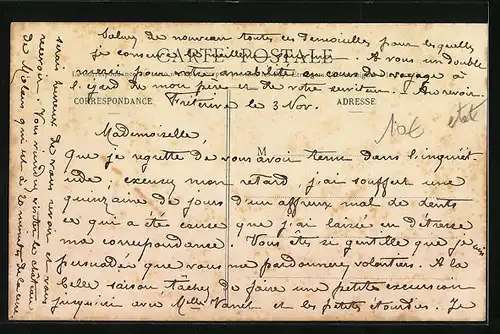 Saluez de nouveau toutes ces demoiselles pour lesquelles
je conserve les meilleurs A vous un double
merci pour votre amabilité en cours de voyage à
l'égard de mon père et de votre serviteur. Au revoir.
CARTE POSTALE
CORRESPONDANCE
ADRESSE
le 3 Nov.
106
état
M
Mademoiselle,
Que je regrette de vous avoir tenu dans l'inquiét-
ude; excusez mon retard j'ai souffert une
quinzaine de jours d'un affreux mal de dents
ce qui a été cause que j'ai laissé en détresse
ma correspondance. Vous êtes si gentille que je suis
persuadée que vous me pardonnerez volontiers. A la
belle saison tâchez de faire une petite excursion
jusqu'ici avec Melle et les petits étourdies. Je
serais heureux de vous revoir et vous
recevoir. Vous viendrez visiter le château
de Miolans qui est à 20 minutes de